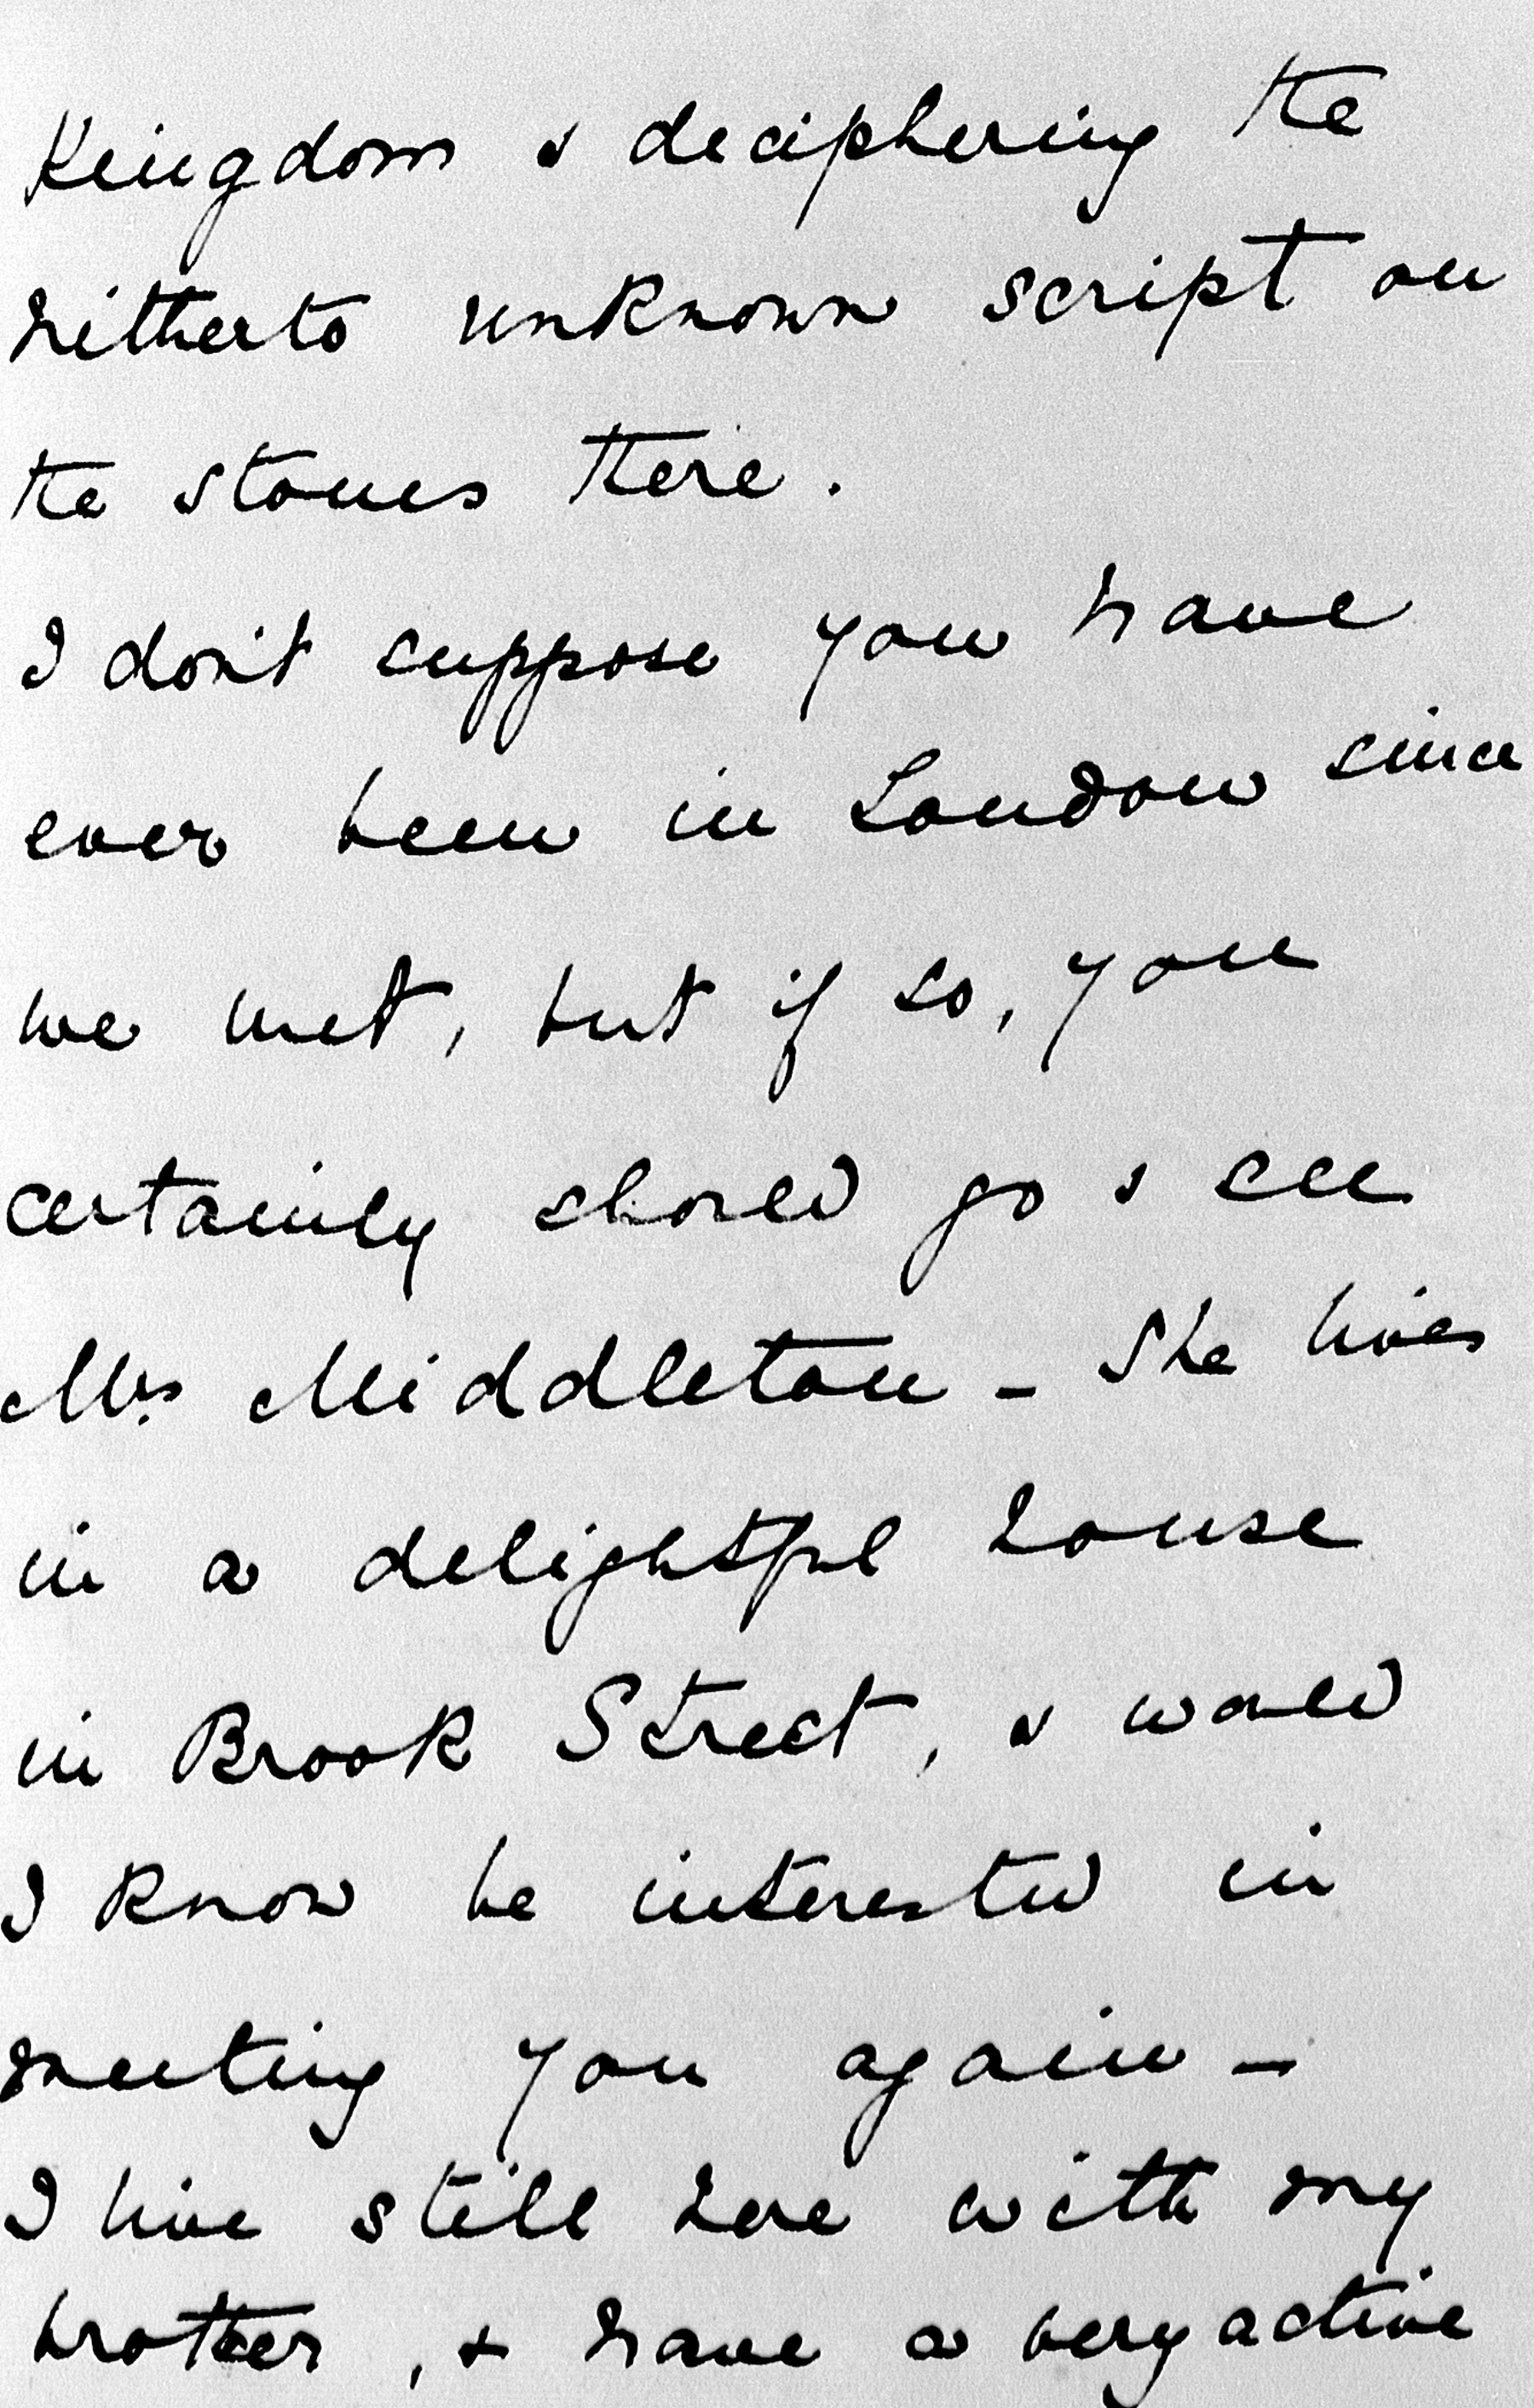 Kingdom & deciphering the
hitherto unknown script on
the stones there.
I don't suppose you have
ever been in London since
we met, but if so, you
certainly should go & see
Mrs Middleton - She lives
in a delightful house
in Brook Street, & would
I know be interested in
meeting you again -
I live still here with my
brother, & have a very active